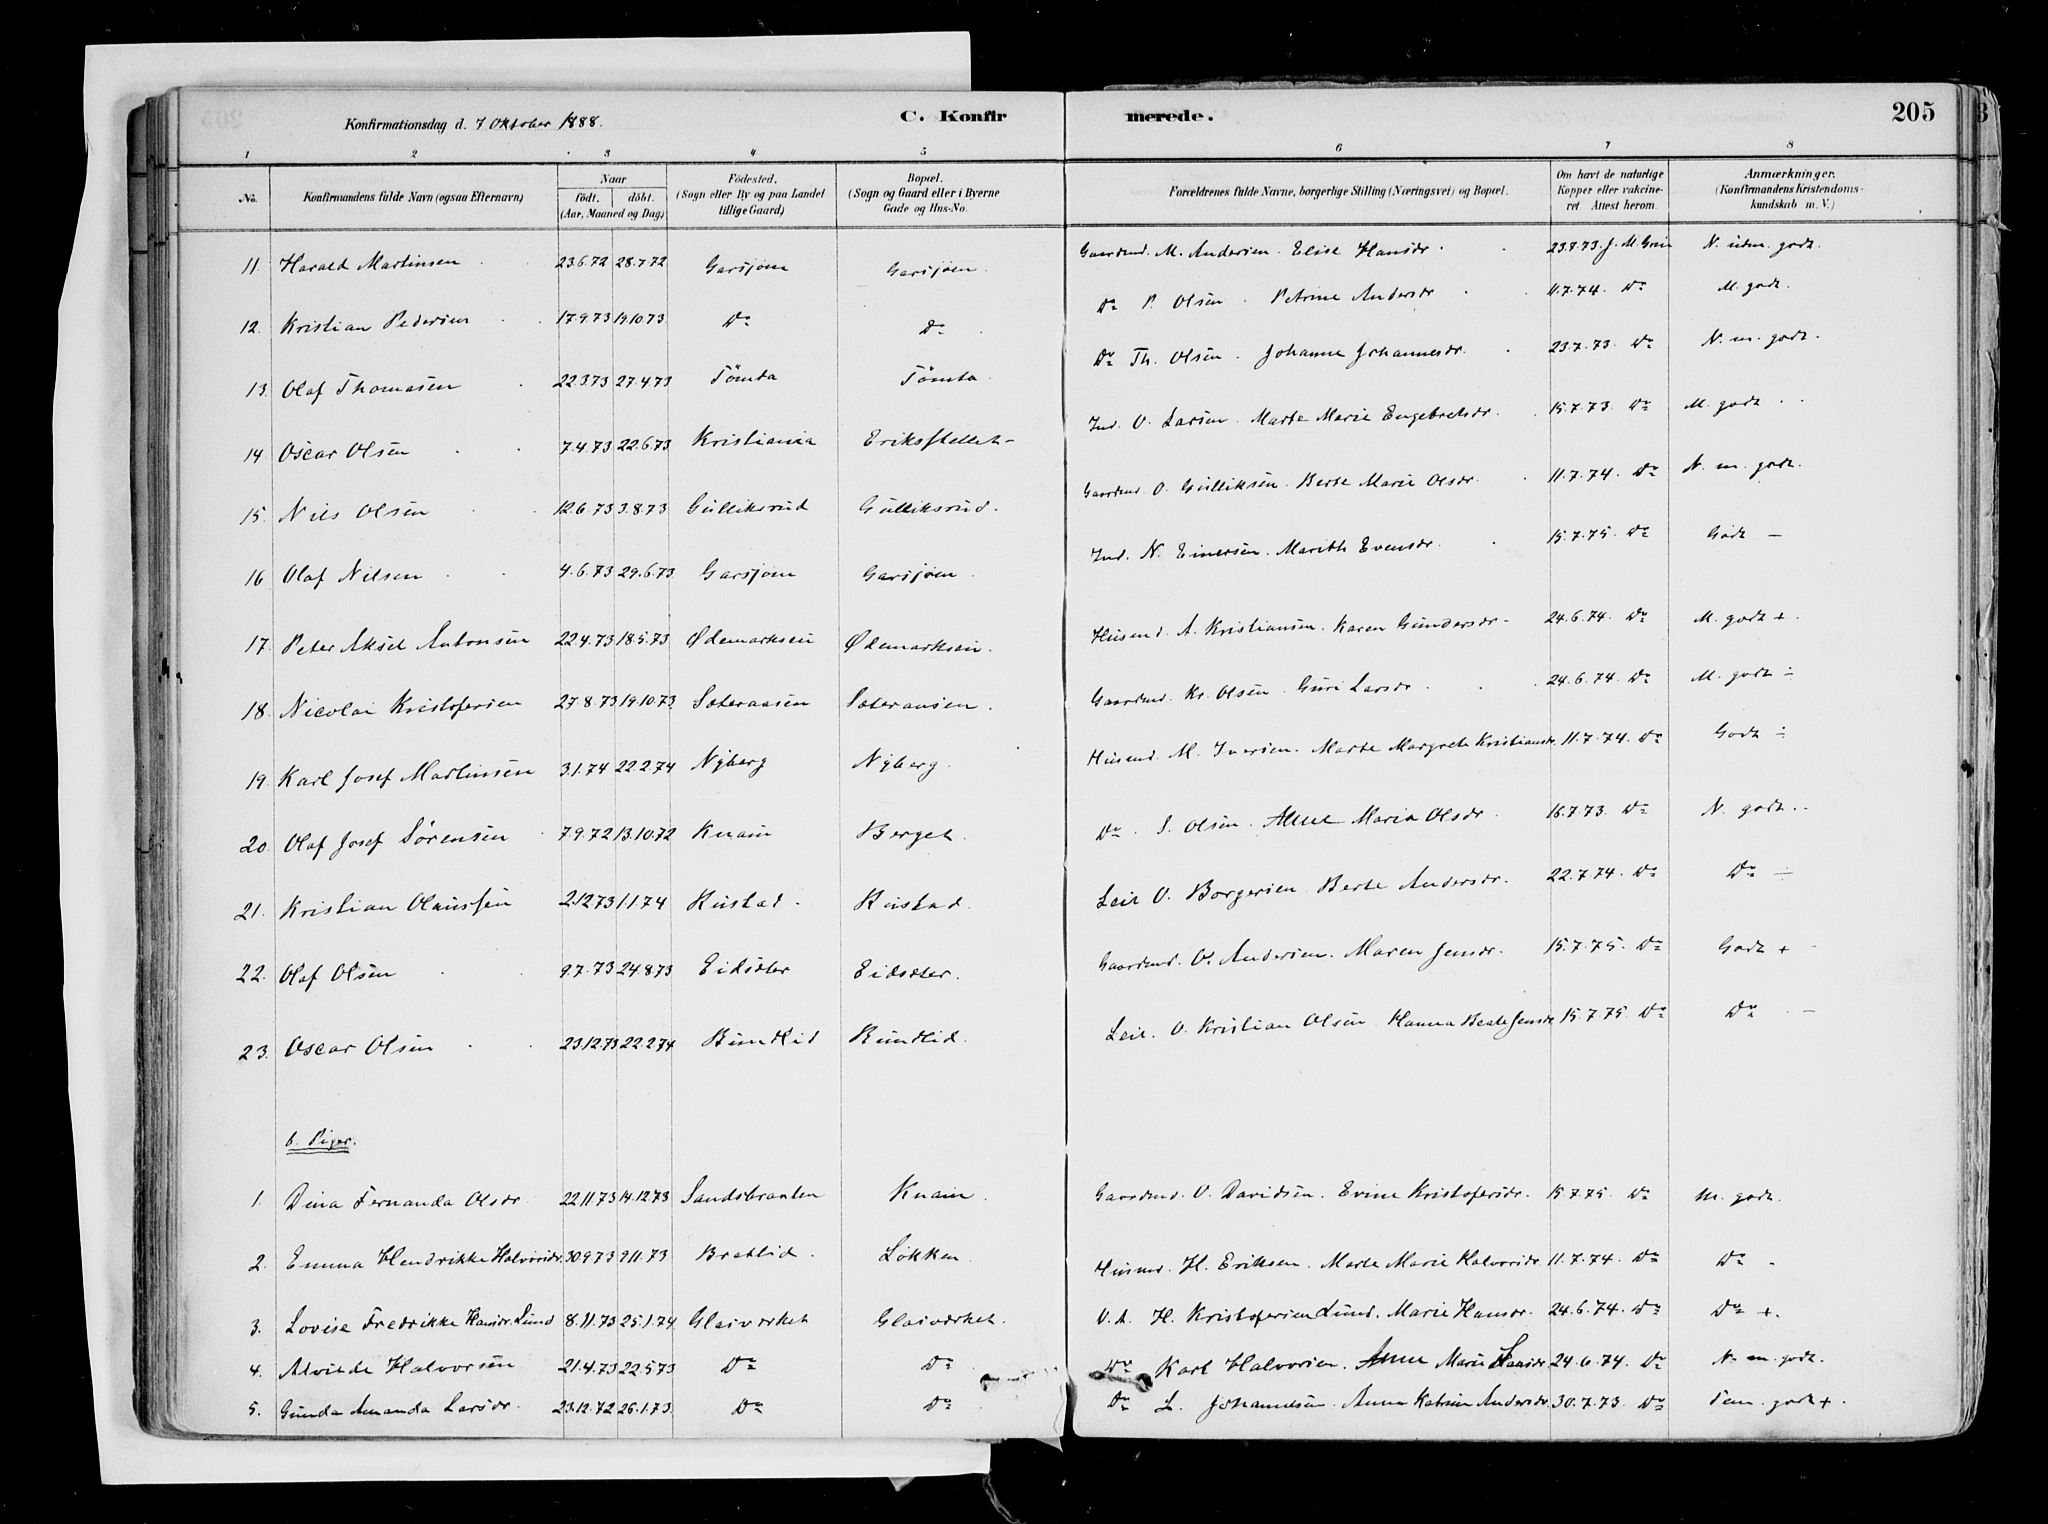 Konfirmationsdag d. 7 Oktober 1888.
C. Konfir
merede.
205
1 2 3 4 5 6 7 8
No. Konfirmandens fulde Navn (ogsaa Efternavn) Naar födt. döbt. (Aar, Maaned og Dag) Födested. (Sogn eller By og paa Landet tillige Gaard) Bopæl. (Sogn og Gaard eller i Byerne Gade og Hus-No. Forældrenes fulde Navne, borgerlige Stilling (Næringsvei) og Bopæl. Om havt de naturlige Kopper eller vakcineret Attest herom. Anmærkninger. (Konfirmandens Kristendomskundskab m. V.)
11. Harald Martinsen 23.6.72 28.7.72 Garsjøen Garsjøen. Gaardmd. M. Andersen. Elise Hansdr. 23.7.73. J. M. N. uden. godt.
12. Kristian Pedersen 17.9.73 19.10.73 Do Do Do P. Olsen. Petrine Andersdr 11.7.74. Do M. godt.
13. Olaf Thomasen 22.3.73 27.4.73 Tömta Tömta Do Th. Olsen. Johanne Johannesdr. 23.7.73. Do N. m. godt.
14 Oscar Olsen 7.4.73 22.6.73 Kristiania Eriksstellet Ind. O. Larsen. Marte Marie Engebretsdr. 15.7.73. Do M. godt
15. Nils Olsen 12.6.73 3.8.73 Gulliksrud Gulliksrud. Gaardmd. O. Gulliksen. Berte Marie Olsdr. 11.7.74. Do N. m. godt.
16 Olaf Nilsen 4.6.73 29.6.73 Garsjøen Garsjøen. Ind. N. Einersen. Marith Evensdr. 15.7.75. Do Godt –
17. Peter Aksel Antonsen 22.4.73 18.5.73 Ødemarkseie Ødemarkseie. Husmd. A. Kristiansen. Karen Gundersdr. 24.6.74. Do M. godt +.
18. Nicolai Kristofersen 27.8.73 19.10.73 Sæteraasen Sæteraasen. Gaardmd. Kr. Olsen. Guri Larsdr. 24.6.74. Do M. godt ÷
19. Karl Josef Martinsen 3.1.74 22.2.74 Nyberg Nyberg. Husmd. M. Iversen. Marte Margrete Kristiansdr. 11.7.74. Do Godt ÷
20. Olaf Josef Sörensen 7.9.72 13.10.72 Knain Berget. Do. S. Olsen. Anne Maria Olsdr. 16.7.73. Do N. godt.
21. Kristian Olaussen 2.12.73 1.1.74 Rustad. Rustad. Leil. O. Borgersen. Berte Andersdr. 22.7.74. Do Do ÷
22. Olaf Olsen 9.7.73 24.8.73 Eidsæter Eidsæter. Gaardmd. O. Andersen. Maren Jensdr. 15.7.75. Do Godt +
23. Oscar Olsen 23.12.73 22.2.74 Bundlid Bundlid. Leil. O. Kristian Olsen Hanna Beate Jensdr. 15.7.75. Do Do –
b. Piger.
1. Dina Fernanda Olsdr. 22.11.73 14.12.73 Sandsbraaten Knain. Gaardmd. O. Davidsen. Evine Kristofersdr. 15.7.75. Do M. godt.
2. Emma Hendrikke Halvorsdr. 30.9.73 9.11.73 Bratlid. Løkken. Husmd. H. Eriksen. Marte Marie Halvorsdr. 11.7.74. Do Do
3. Lovise Fredrikke Hansdr. Lund 8.11.73 25.1.74 Glasværket Glasværket. H. Kristofersen Lund. Marie Hansdr. 24.6.74. Do Do +.
4. Alvilde Halvorsen 21.4.73 22.5.73 Do Do Do Karl Halvorsen. Anne Marie 24.6.74. Do N. m. godt.
5. Gunda Amanda Larsdr. 23.12.72 26.1.73 Do Do Do L. Johannesen. Anne Katrine Andersdr. 30.7.73. Do Tem. godt +.